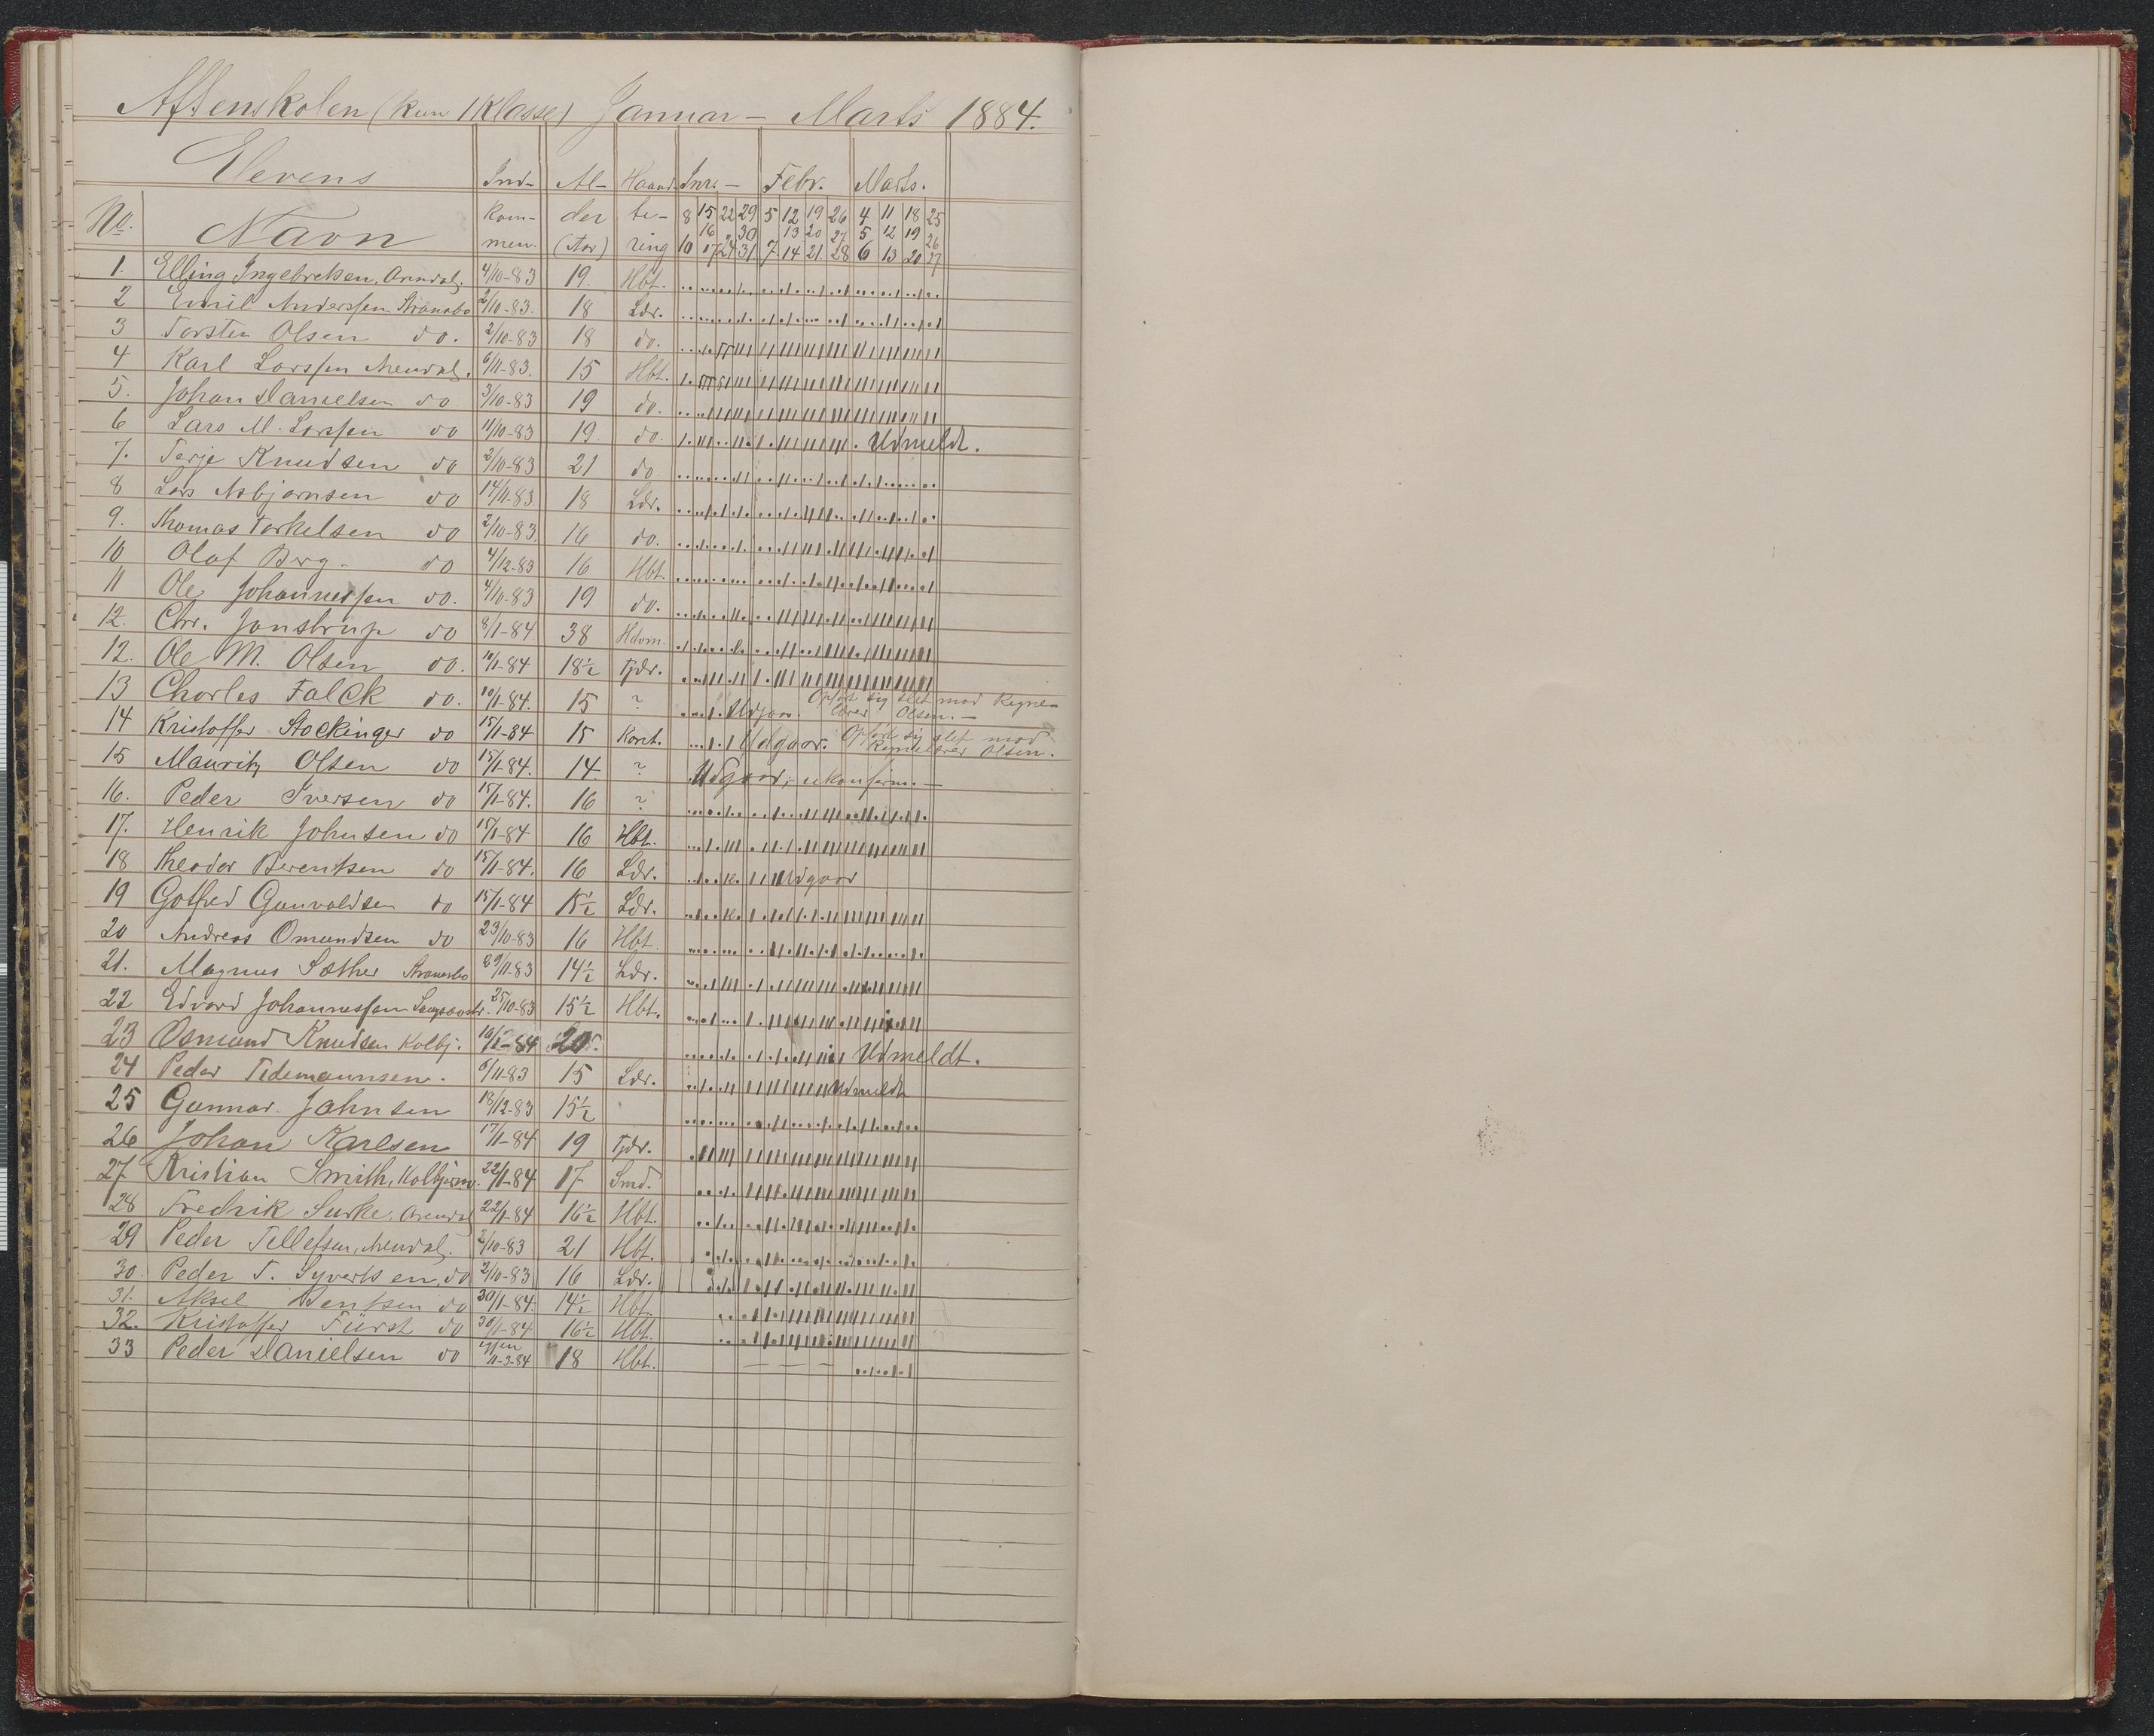 Aftenskolen (kun 1 Klasse) Januar – Marts 1884.
Elevens Ind- Al- Haand- Jnr. – Febr. Marts.
No. Navn kom- der te- 8 15 22 29 5 12 19 26 4 11 18 25
16 30 13 20 27 5 12 19 26
men. (Aar) ring 10 17 24 31 7 14 21 28 6 13 20 27
1. Elling Ingebretsen, Arendal. 4/10-83 19. Hbt.
2 Emil Anderssen 2/10-83. 18 Ldr.
3 Torsten Olsen do. 2/10-83 18 do.
4 Karl Larssen Arendal. 6/11-83. 15 Hbt.
5. Johan Danielsen do 3/10-83 19 do.
6 Lars M. Larssen do 11/10-83 19. do. Udmeldt.
7. Terje Knudsen do 2/10-83 21 do
8 Lars Asbjørnsen do 14/11-83. 18 Ldr.
9. Thomas Torkelsen do 2/10-83. 16 do.
10 Olaf Berg do 4/12-83 16 Hbt.
11 Ole Johannessen do. 4/10-83 19 do.
12. Chr. Jonstrup do 8/1-84 38 Hdvm.
12. Ole M. Olsen do. 10/1-84 18½ Tjdr.
13 Charles Falck do. 10/1-84. 15 ? Udgaar. Opført sig slet mod Regne-
lærer Olsen. –
14 Kristoffer Stockinger do 15/1-84 15 Kont. Udgaar. Opført sig slet mod
Regnelærer Olsen.
15 Mauritz Olsen do 15/1-84. 14. ? Udgaar, ukonfirm. –
16. Peder Iversen do 15/1-84. 16 ?
17. Henrik Johnsen do 15/1-84 16 Hbt.
18 Theodor Berentsen do 15/1-84. 16 Ldr. Udgaar
19 Gotfred Gunvaldsen do 15/1-84 15½ Ldr.
20 Andreas Omundsen do 23/10-83 16 Hbt.
21. Magnus Sæther 29/11-83 14½ Ldr.
22 Edvard Johannessen 25/10-83 15½ Hbt.
23 Osmund Knudsen Kolbj. 10/1-84 20 Udmeldt.
24 Peder Tidemannsen. 6/11-83 15 Ldr. Udmeldt
25 Gunnar Johnsen 18/12-83 15½
26 Johan Karlsen 17/1-84 19 Tjdr.
27 Kristian Smith, Kolbjørnv. 22/1-84 17 Smd.
28 Fredrik Surke, Arendal 22/1-84 16½ Hbt.
29 Peder Tellefsen, Arendal. 2/10-83 21 Hbt.
30. Peder T. Syvertsen, do 2/10-83 16 Ldr.
31. Aksel Bentsen do 30/1-84. 14½ Hbt.
32. Kristoffer Fürst do 30/1-84 16½ Hbt.
33 Peder Danielsen do igjen 11-3-84 18 Hbt. – – – –